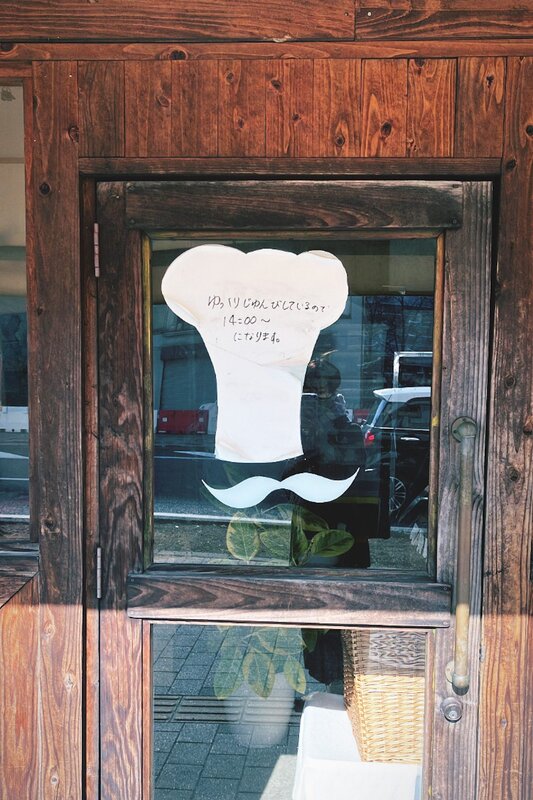 ゆっくりじゅんびしているので
14:00～
になります。